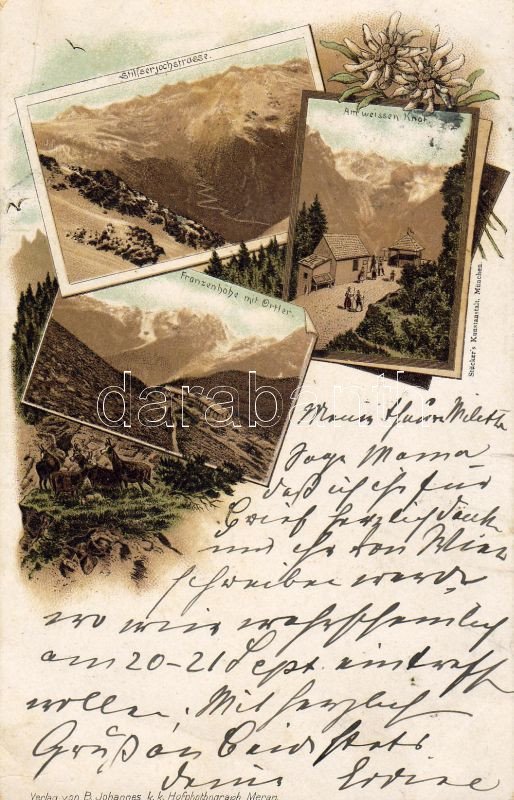 Stilfserjochstrasse.
Am weissen Knot.
Franzenhöhe mit Ortler.
Stücker's Kunstanstalt, München.
darabanth
Meine theure
Sage Mama
daß ich ihr für
Brief herzlich danke
und ihr von Wien
schreiben werde,
wo wir wahrscheinlich
am 20-21 Sept. eintreffen
wollen. Mit herzlich
Gruß an Beide stets
deine
Verlag von B. Johannes k. k. Hofphotograph Meran.